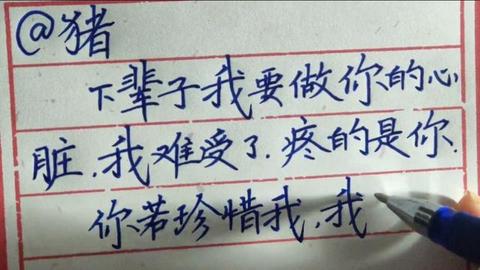 @猪
下辈子我要做你的心
脏.我难受了.疼的是你.
你若珍惜我.我